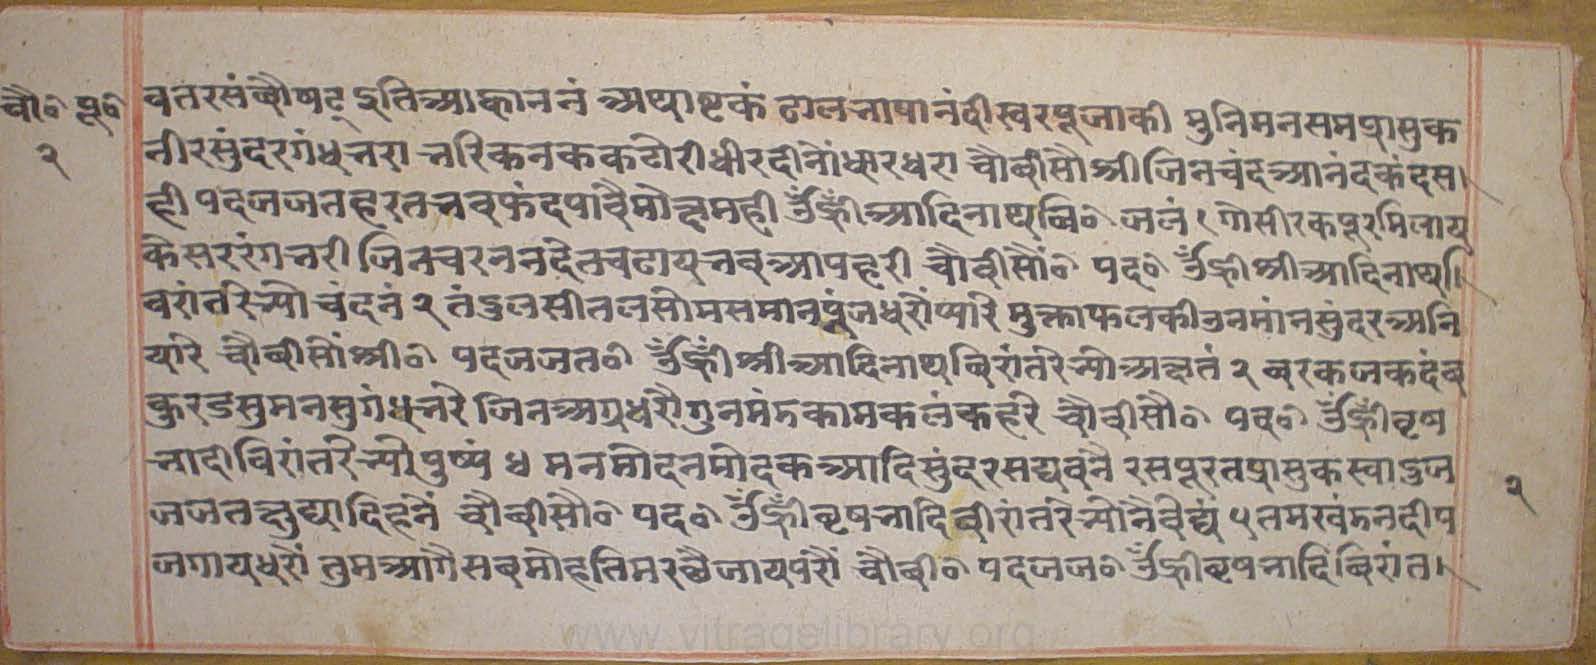 चौ० पू०
२
वतरसंवौषट् इतिआह्वाननं अथाष्टकं ढालभाषानंदीस्वरपूजाकी मुनिमनसमप्रासुक
नीरसुंदरगंधभरा भरिकनककटोरीधीरदीनोंधारधरा चौवीसौश्रीजिनचंदआनंदकंदस
ही पदजजतहरतभवफंदपावैमोक्षमही उँह्रींआदिनाथवि० जलं १ गोसीरकपूरमिलाय
केसररंगभरी जिनचरननदेतचढायभवआपहरी चौवीसौं० पद० उँह्रींश्रीआदिनाथ
वरांतरेभ्यो चंदनं २ तंडुलसीतलसोमसमानपूंजधरोंप्यारे मुक्ताफलकीउनमांनसुंदरअनि
यारे चौवीसौंश्री० पदजजत० उँह्रींश्रीआदिनाथविरांतरेभ्योअक्षतं ३ वरकजकदंब
कुरंडसुमनसुगंधभरे जिनअग्रधरौगुनमंडकामकलंकहरे चौवीसौ० पद० उँह्रींवृष
भादीविरांतरेभ्योपुष्पं ४ मनमोदनमोदकआदिसुंदरसद्यवनै रसपूरतप्रासुकस्वाडज
जजतक्षुद्यादिहनें चौवीसौ० पद० उँह्रींवृषभादिवीरांतरेभ्योनैवेद्यं ५ तमखंडनदीप
जगायधरों तुमआगैसवमोहतिमरछैजायपरौं चौवी० पदजज० उँह्रींवृषभादिविरांत
२
www.vitragelibrary.org